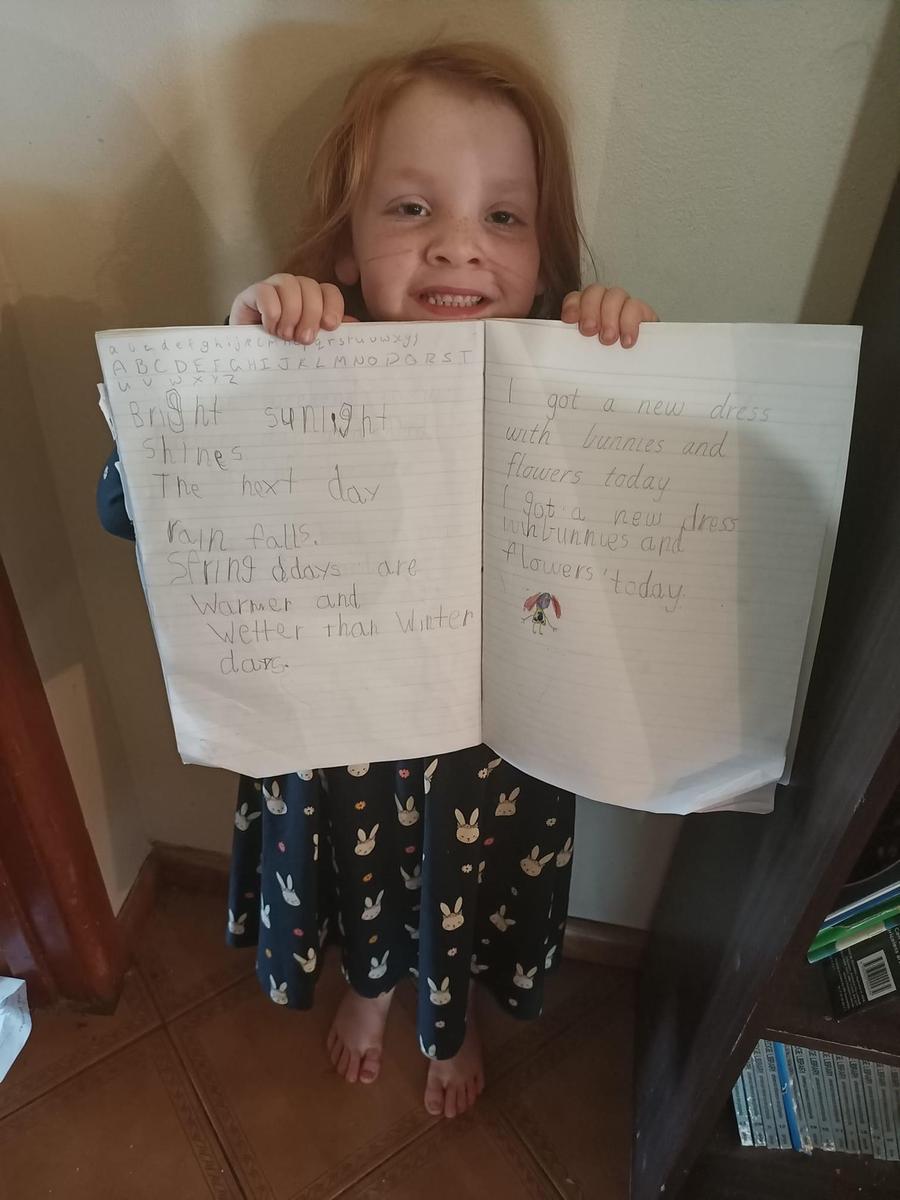 a b c d e f g h i j k l m n o p q r s t u v w x y z
A B C D E F G H I J K L M N O P Q R S T
U V W X Y Z
Bright sunlight
shines
The next day
rain falls.
Spring ddays are
warmer and
wetter than winter
days.
I got a new dress
with bunnies and
flowers today
I got a new dress
withbunnies and
flowers today.